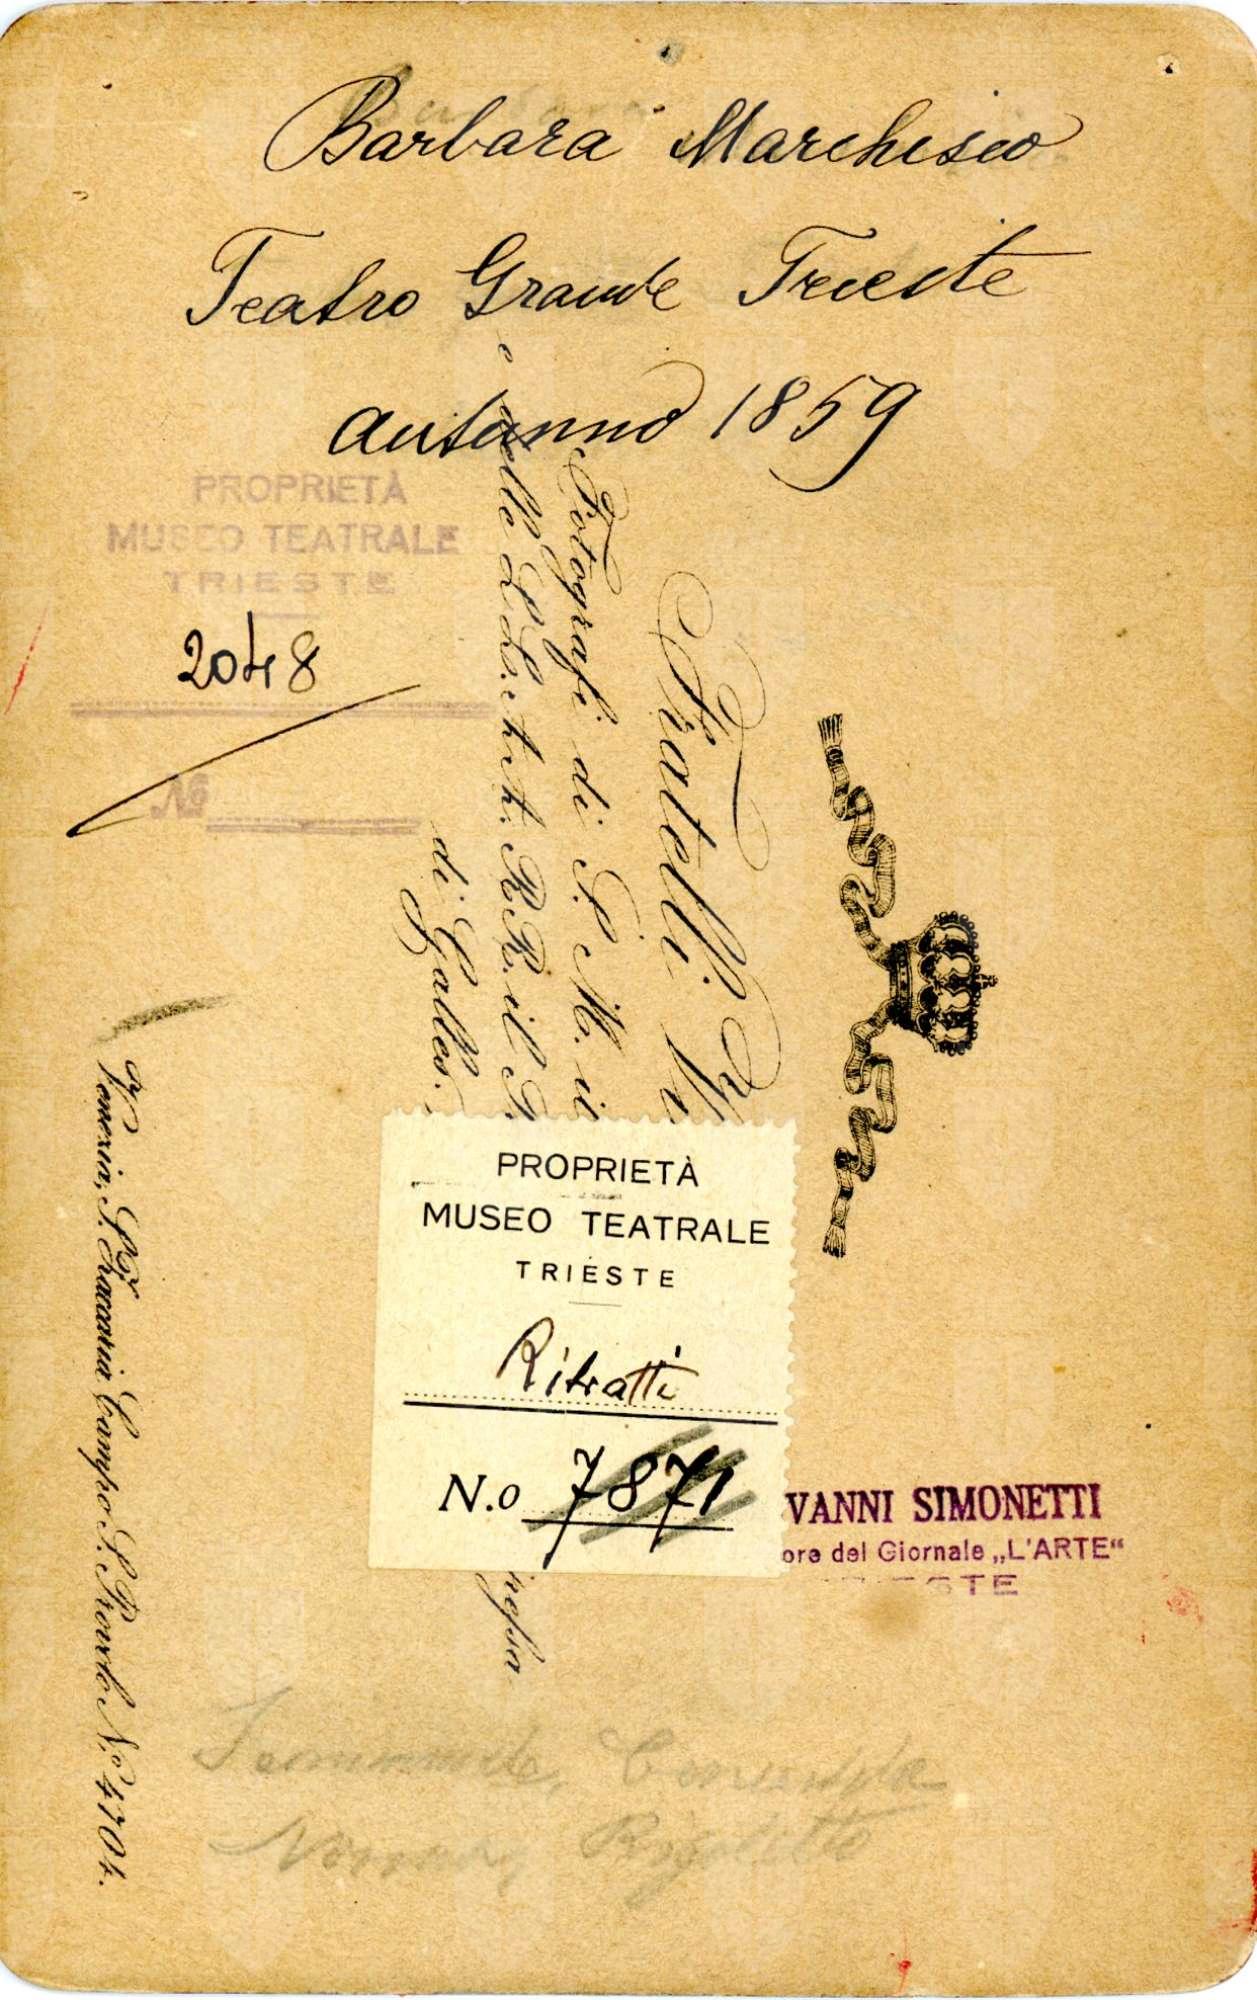 Barbara Marchisio
Teatro Grande Trieste
autunno 1859
PROPRIETÀ
MUSEO TEATRALE
TRIESTE
2048
No
Fratelli
Fotografi di S. M. il
e delle L.L. A.A. R.R. il
di Galles.
Venezia, S. Zaccaria Campo S. Provolo N.o 4704.
PROPRIETÀ
MUSEO TEATRALE
TRIESTE
Ritratti
N.o 7871
VANNI SIMONETTI
ore del Giornale „L'ARTE“
TRIESTE
Rigoletto